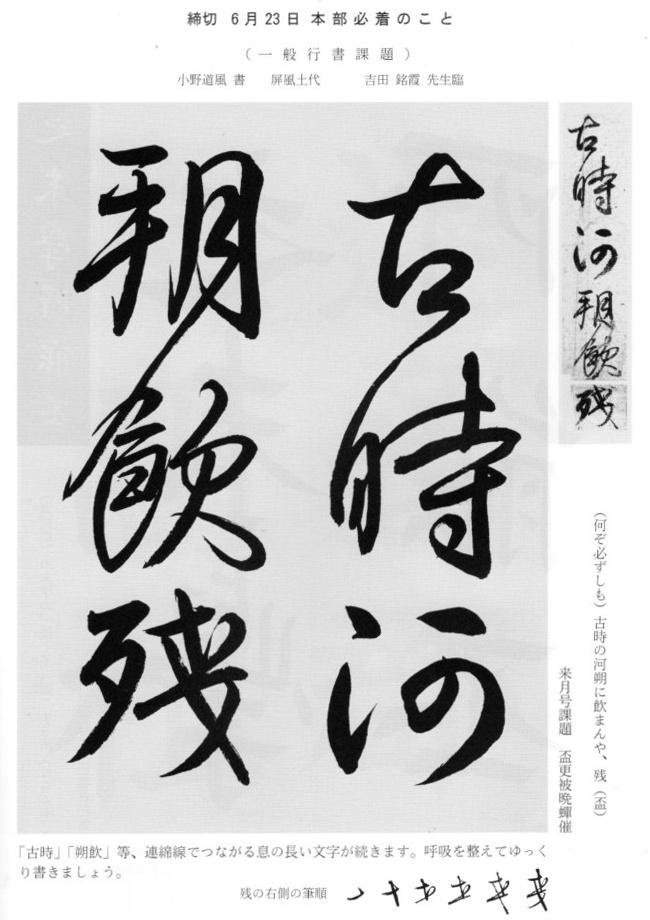 締切 6月23日本部必着のこと
（一般行書課題）
小野道風 書 屏風土代 吉田 銘霞 先生臨
古時河朔飲残
古時河
朔飲残
（何ぞ必ずしも）古時の河朔に飲まんや、残（盃）
来月号課題 盃更被晩蟬催
「古時」「朔飲」等、連綿線でつながる息の長い文字が続きます。呼吸を整えてゆっく
り書きましょう。
残の右側の筆順